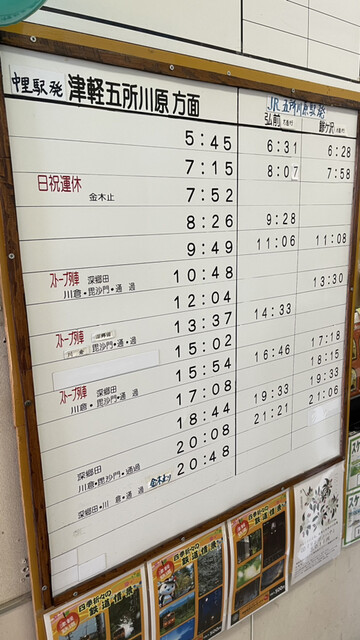 中里駅発 津軽五所川原 方面
JR 五所川原駅発
弘前 方面行
鰺ケ沢 方面行
5:45 6:31 6:28
7:15 8:07 7:58
日祝運休 金木止 7:52
8:26 9:28
9:49 11:06 11:08
ストーブ列車 深郷田
川倉・毘沙門・通過 10:48
12:04 13:30
13:37 14:33
ストーブ列車
毘沙門・通過 15:02
15:54 16:46 17:18
ストーブ列車 深郷田
川倉・毘沙門・通過 17:08 18:15
18:44 19:33 19:33
20:08 21:21 21:06
深郷田
川倉・毘沙門・通過 20:48
深郷田・川倉・通過 金木より
四季折々の
鉄道情景
四季折々の
鉄道情景
四季折々の
鉄道情景